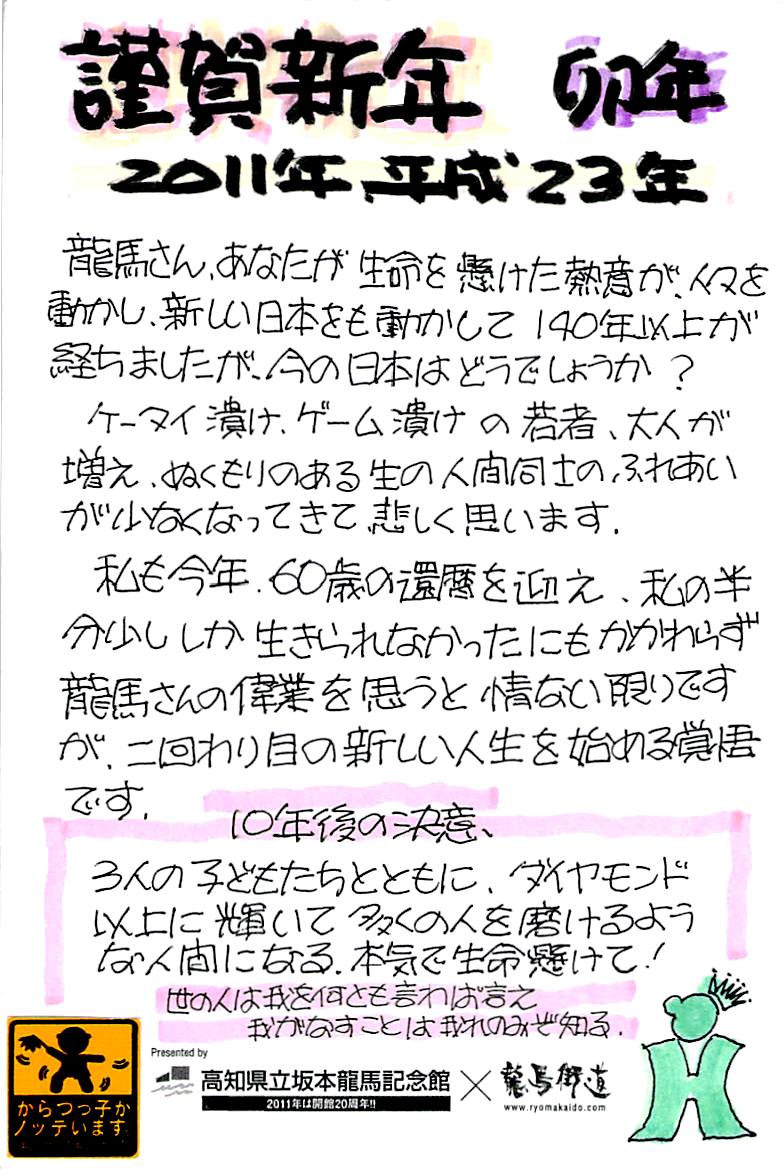 謹賀新年 卯年
2011年、平成23年
龍馬さん、あなたが生命を懸けた熱意が、人々を
動かし、新しい日本をも動かして140年以上が
経ちましたが、今の日本はどうでしょうか?
ケータイ漬け、ゲーム漬けの若者、大人が
増え、ぬくもりのある生の人間同士のふれあい
が少なくなってきて悲しく思います。
私も今年、60歳の還暦を迎え、私の半
分少ししか生きられなかったにもかかわらず
龍馬さんの偉業を思うと情ない限りです
が、二回わり目の新しい人生を始める覚悟
です。
10年後の決意、
3人の子どもたちとともに、ダイヤモンド
以上に輝いて多くの人を磨けるよう
な人間になる。本気で生命懸けて!
世の人は我を何とも言わば言え
我がなすことは我れのみぞ知る。
からつっ子が
ノッています
Presented by
高知県立坂本龍馬記念館
2011年は開館20周年!!
×
龍馬街道
www.ryomakaido.com